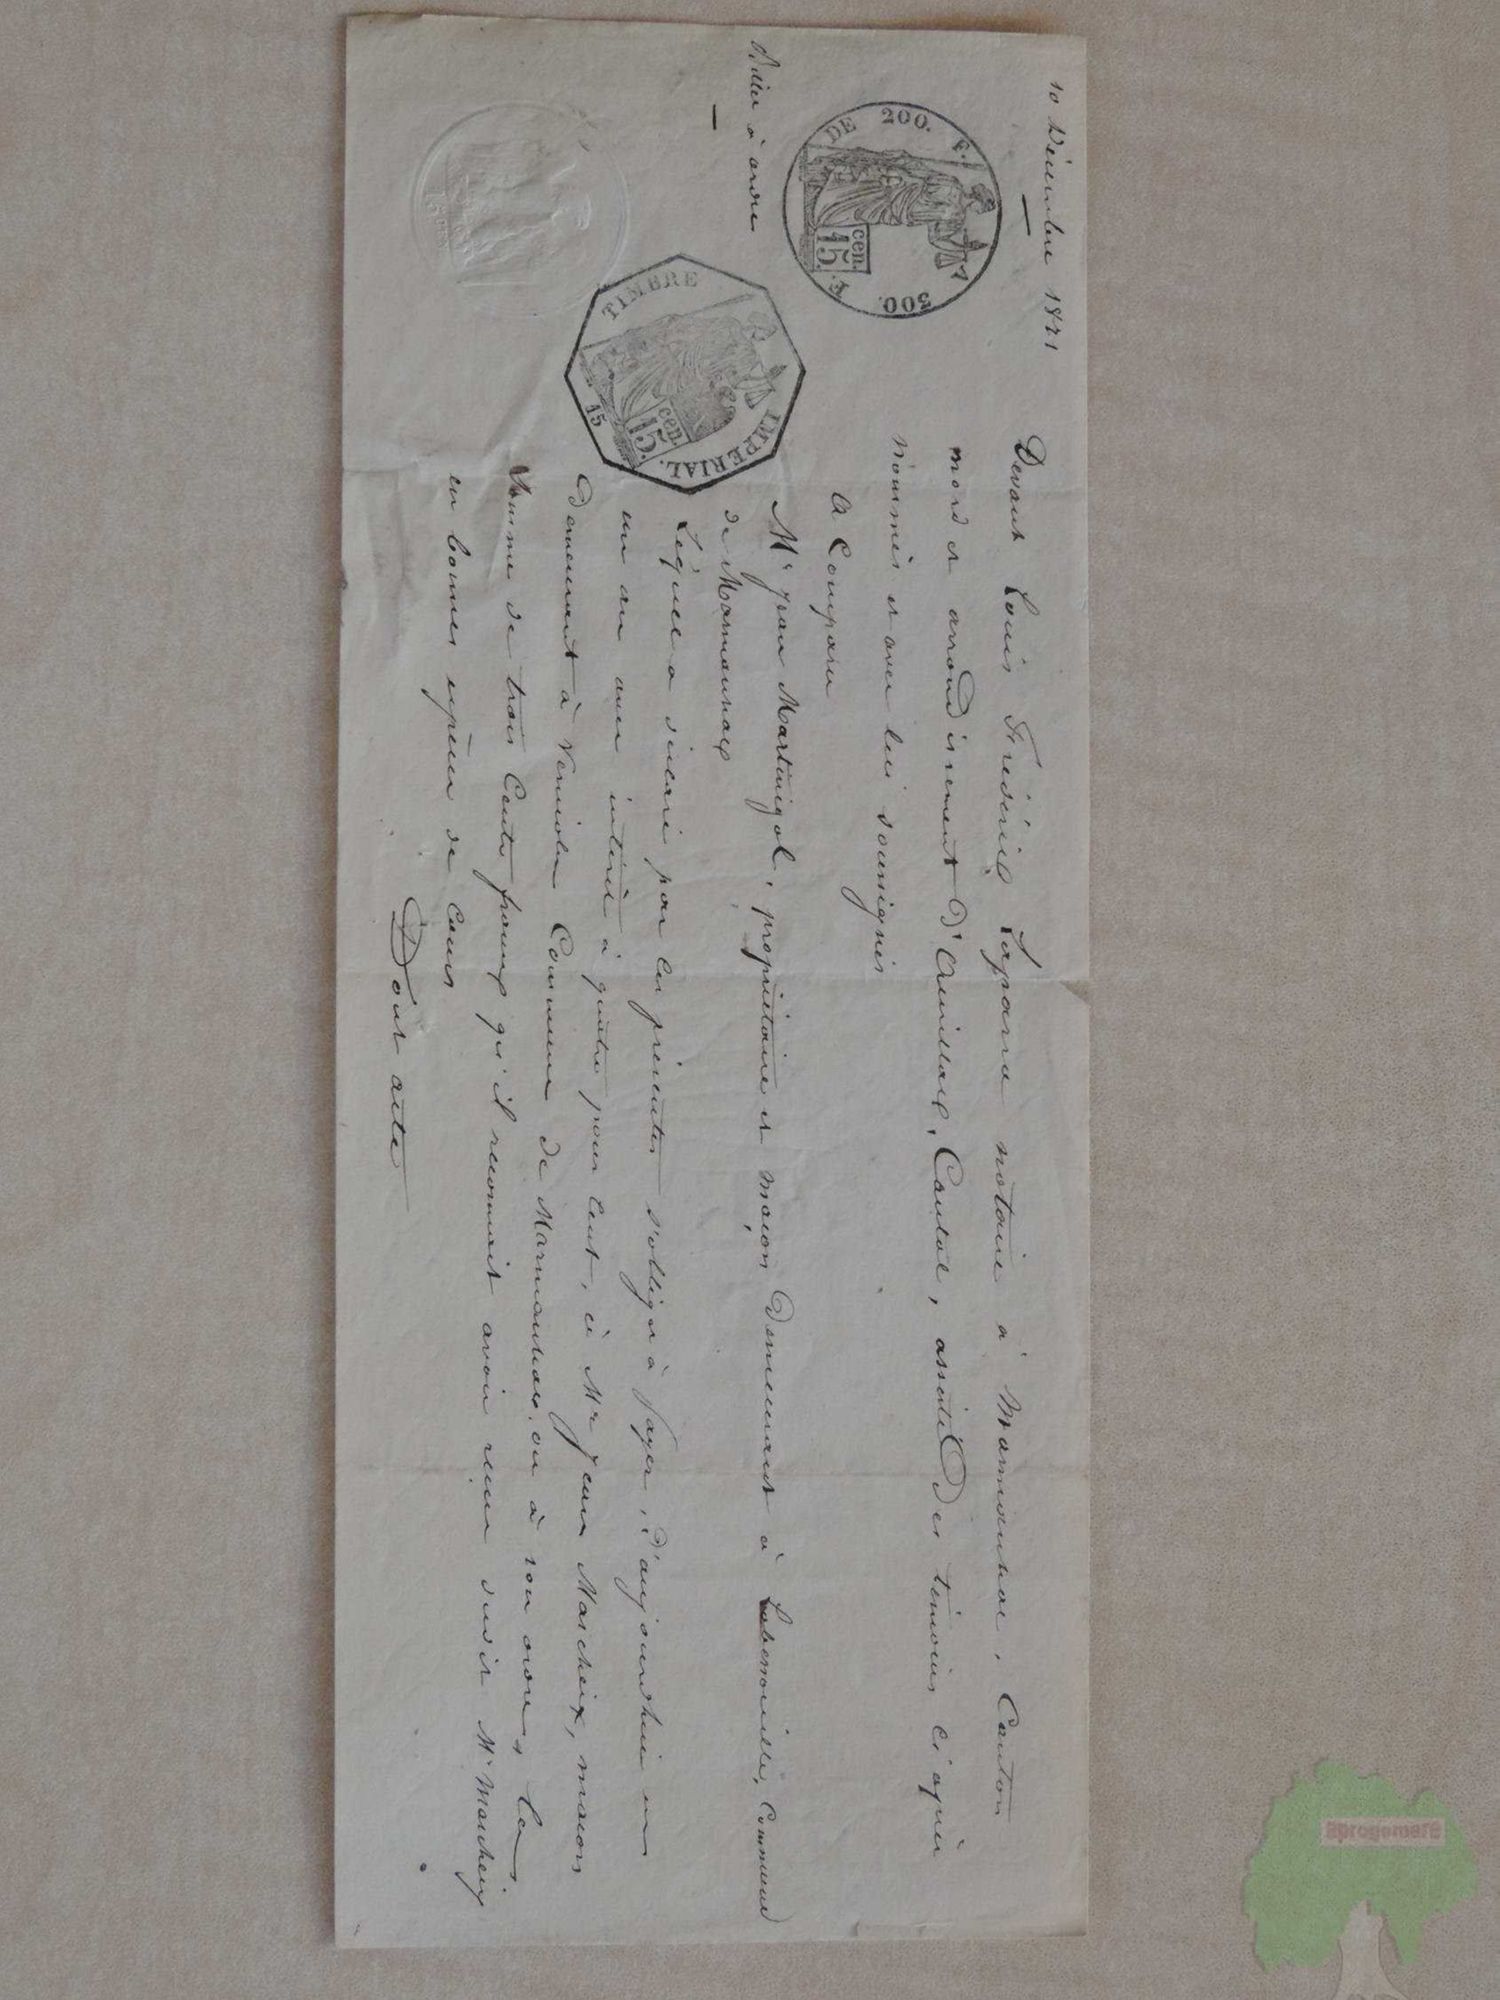 10 Décembre 1871
DE 200. F. A 300. F.
15.
cen.
Billet à ordre
TIMBRE IMPERIAL.
15.
cen.
15
Devant Louis Frédéric Laparra notaire à Marmanhac, Canton
nord et arrondissement D'Aurillac, Cantal, assisté Des témoins ci après
nommés et avec lui soussignés
A Comparu
Mr Jean Martinigol, propriétaire et maçon Demeurant à Labessouille, Commune
de Marmanhac
Lequel a déclaré par ces présentes s'obliger à payer, D'aujourdhui en
un an avec intérêt à quatre pour cent, à Mr Jean Mascheix, maçon
Demeurant à Commune de Marmanhac, ou à son ordre, la
Somme de trois Cents francs qu'il reconnait avoir reçue dudit Mr Mascheix
en bonnes espèces de cours
Dont acte
aprogemere